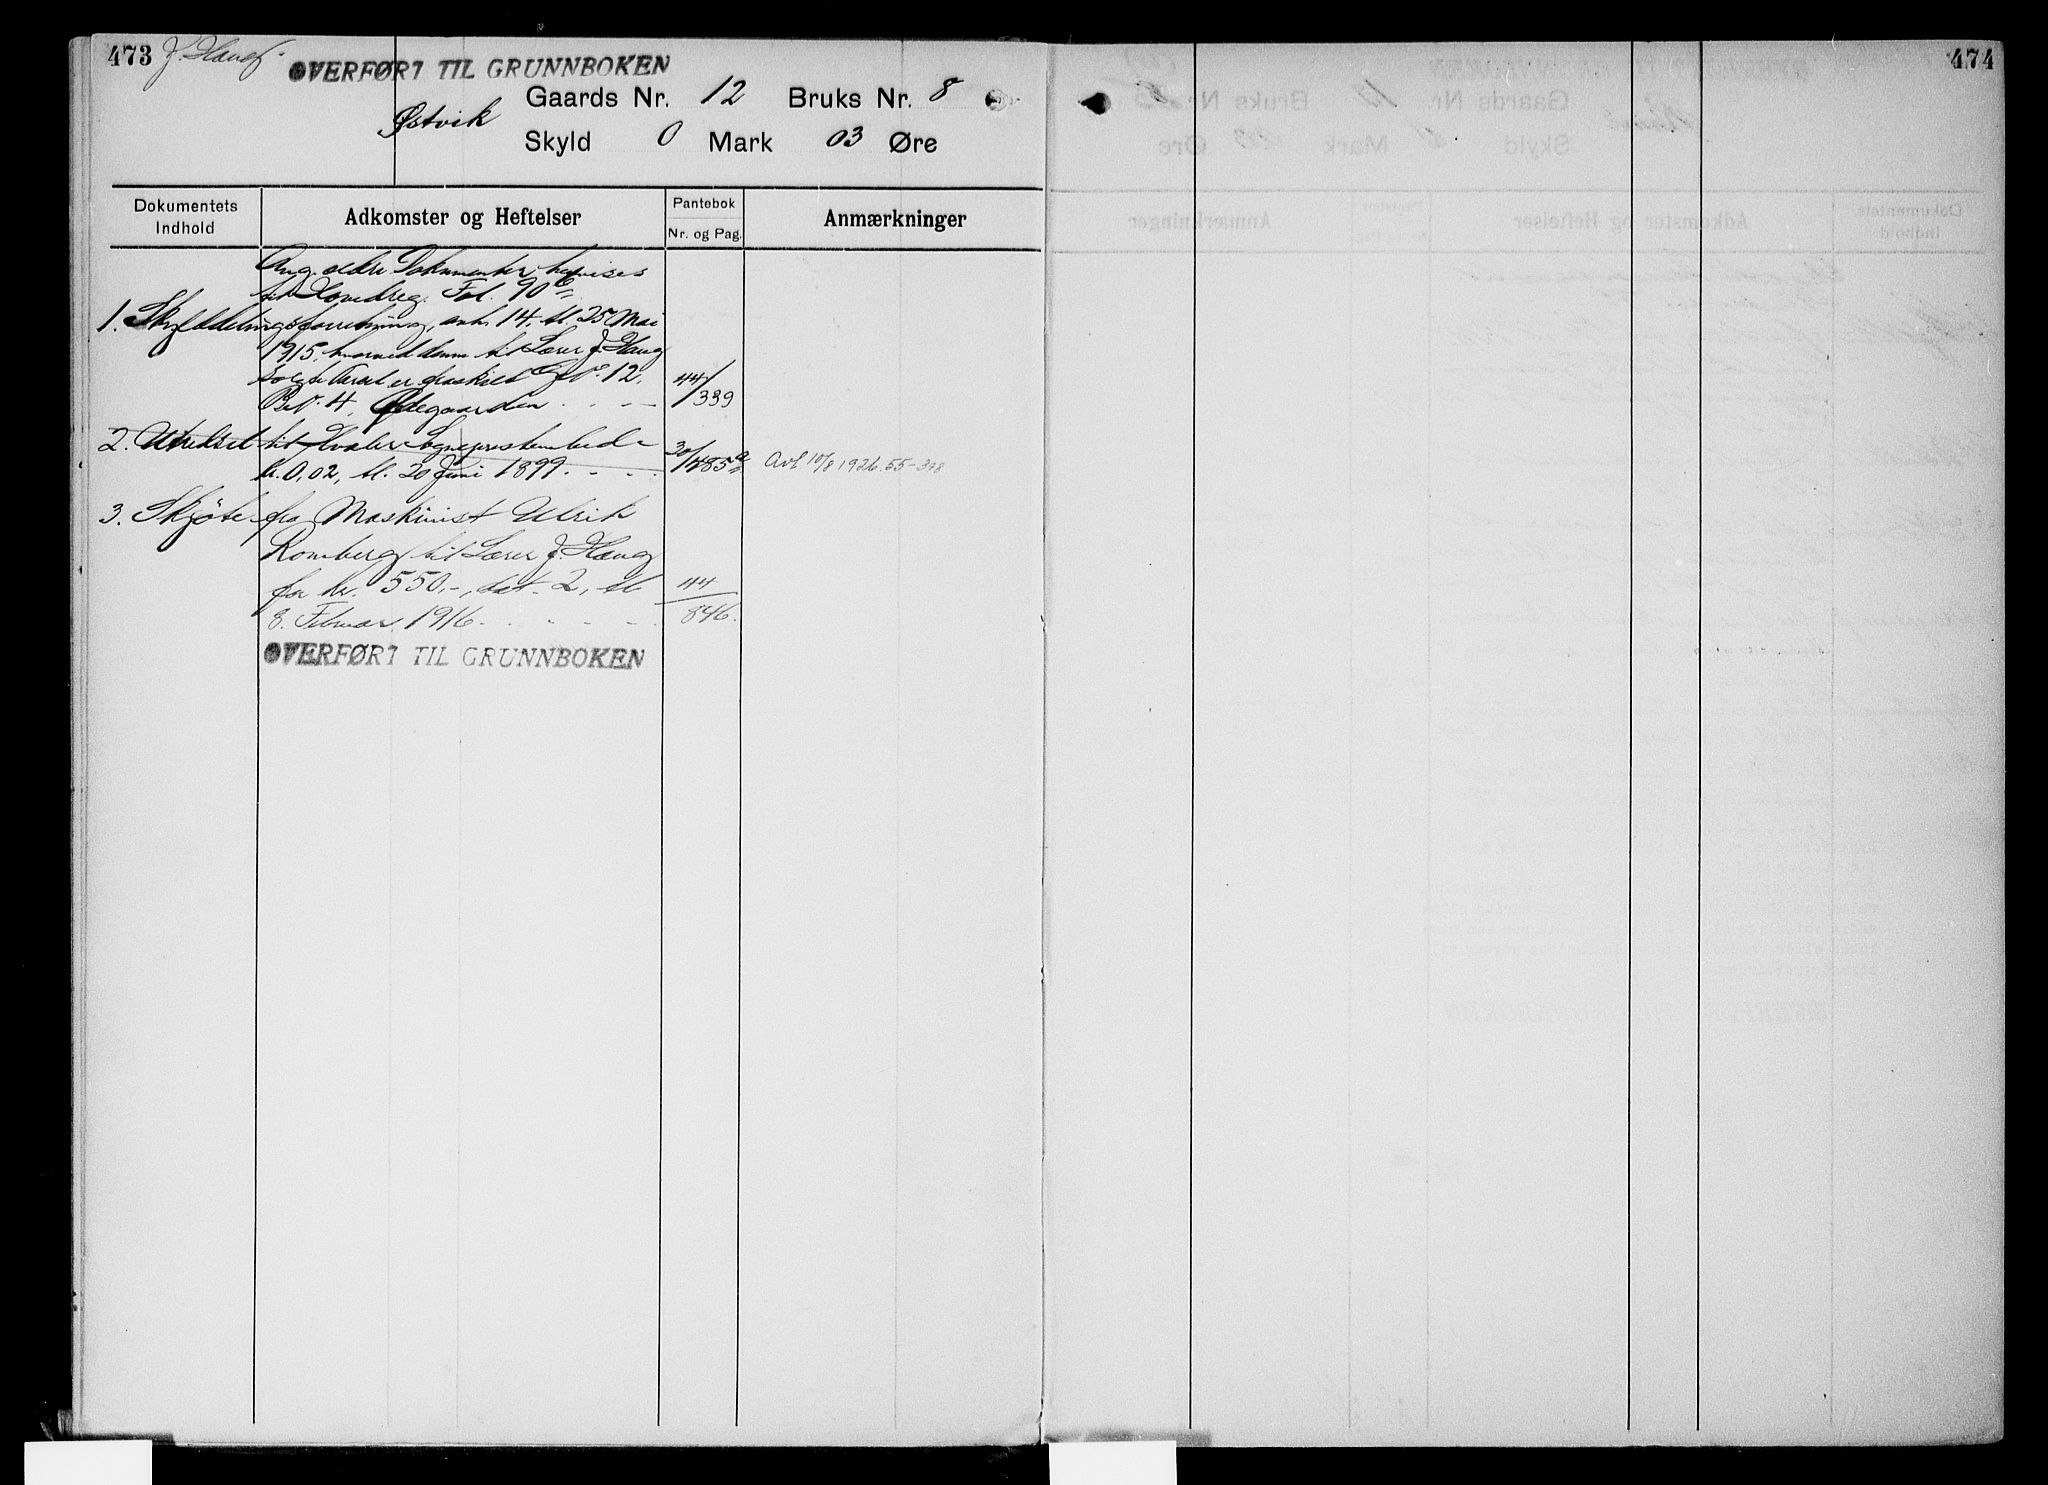 473 J. Haug.
OVERFØRT TIL GRUNNBOKEN
Gaards Nr. 12 Bruks Nr. 8
Østvik
Skyld 0 Mark 03 Øre
Dokumentets Indhold
Adkomster og Heftelser
Pantebok
Nr. og Pag.
Anmærkninger
Ang. ældre Dokumenter henvises
til Hovedreg. Fol. 90
1. Skylddelingsforretning, avh. 14. tl. 25 Mai
1915, hvorved denne til Lærer J. Haug
solgte Parcel er fraskilt GNo. 12,
BNo. 4, Ødegaarden . . - 44/339
2. Utredsel til Hvaler Sogneprestembede
kr. 0,02, tl. 20 Juni 1899. - . - . 30/485a Avl 10/8 1926. 55-398
3. Skjøte fra Maskinist Ulrik
Romberg til Lærer J. Haug
for kr. 550,-, dat. 2, tl
8. Februar 1916. - . - . 44/846.
OVERFØRT TIL GRUNNBOKEN
474